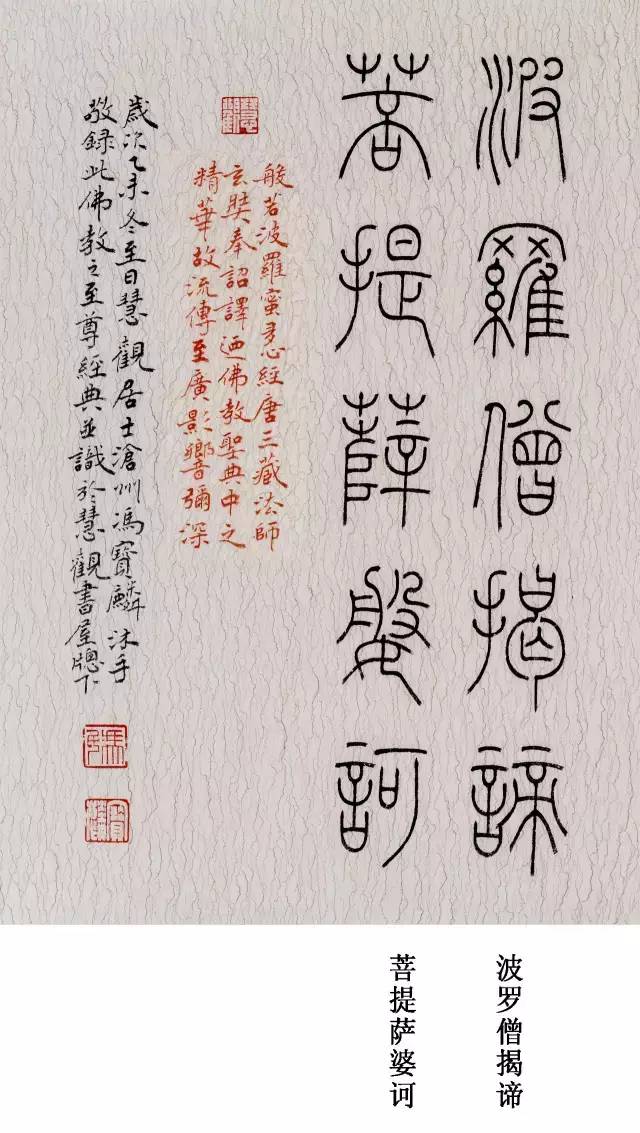 波羅僧揭諦
菩提薩婆訶
慧觀
般若波羅蜜多心經唐三藏法師
玄奘奉詔譯迺佛教聖典中之
精華故流傳至廣影響彌深
歲次乙未冬至日慧觀居士滄州馮寶麟沐手
敬録此佛教之至尊經典並識於慧觀書屋牕下
波罗僧揭谛
菩提萨婆诃